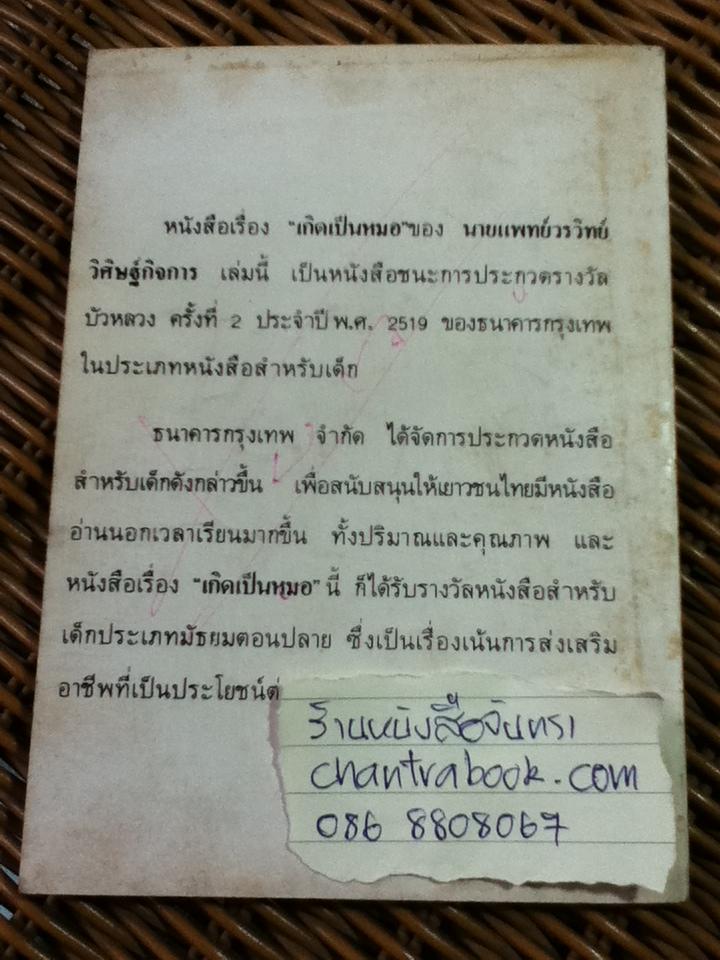 หนังสือเรื่อง "เกิดเป็นหมอ"ของ นายแพทย์วรวิทย์
วิศิษฐ์กิจการ เล่มนี้ เป็นหนังสือชนะการประกวดรางวัล
บัวหลวง ครั้งที่ 2 ประจำปี พ.ศ. 2519 ของธนาคารกรุงเทพ
ในประเภทหนังสือสำหรับเด็ก
ธนาคารกรุงเทพ จำกัด ได้จัดการประกวดหนังสือ
สำหรับเด็กดังกล่าวขึ้น เพื่อสนับสนุนให้เยาวชนไทยมีหนังสือ
อ่านนอกเวลาเรียนมากขึ้น ทั้งปริมาณและคุณภาพ และ
หนังสือเรื่อง "เกิดเป็นหมอ" นี้ ก็ได้รับรางวัลหนังสือสำหรับ
เด็กประเภทมัธยมตอนปลาย ซึ่งเป็นเรื่องเน้นการส่งเสริม
อาชีพที่เป็นประโยชน์ต่
ร้านหนังสือจันทรา
chantrabook.com
086 8808067